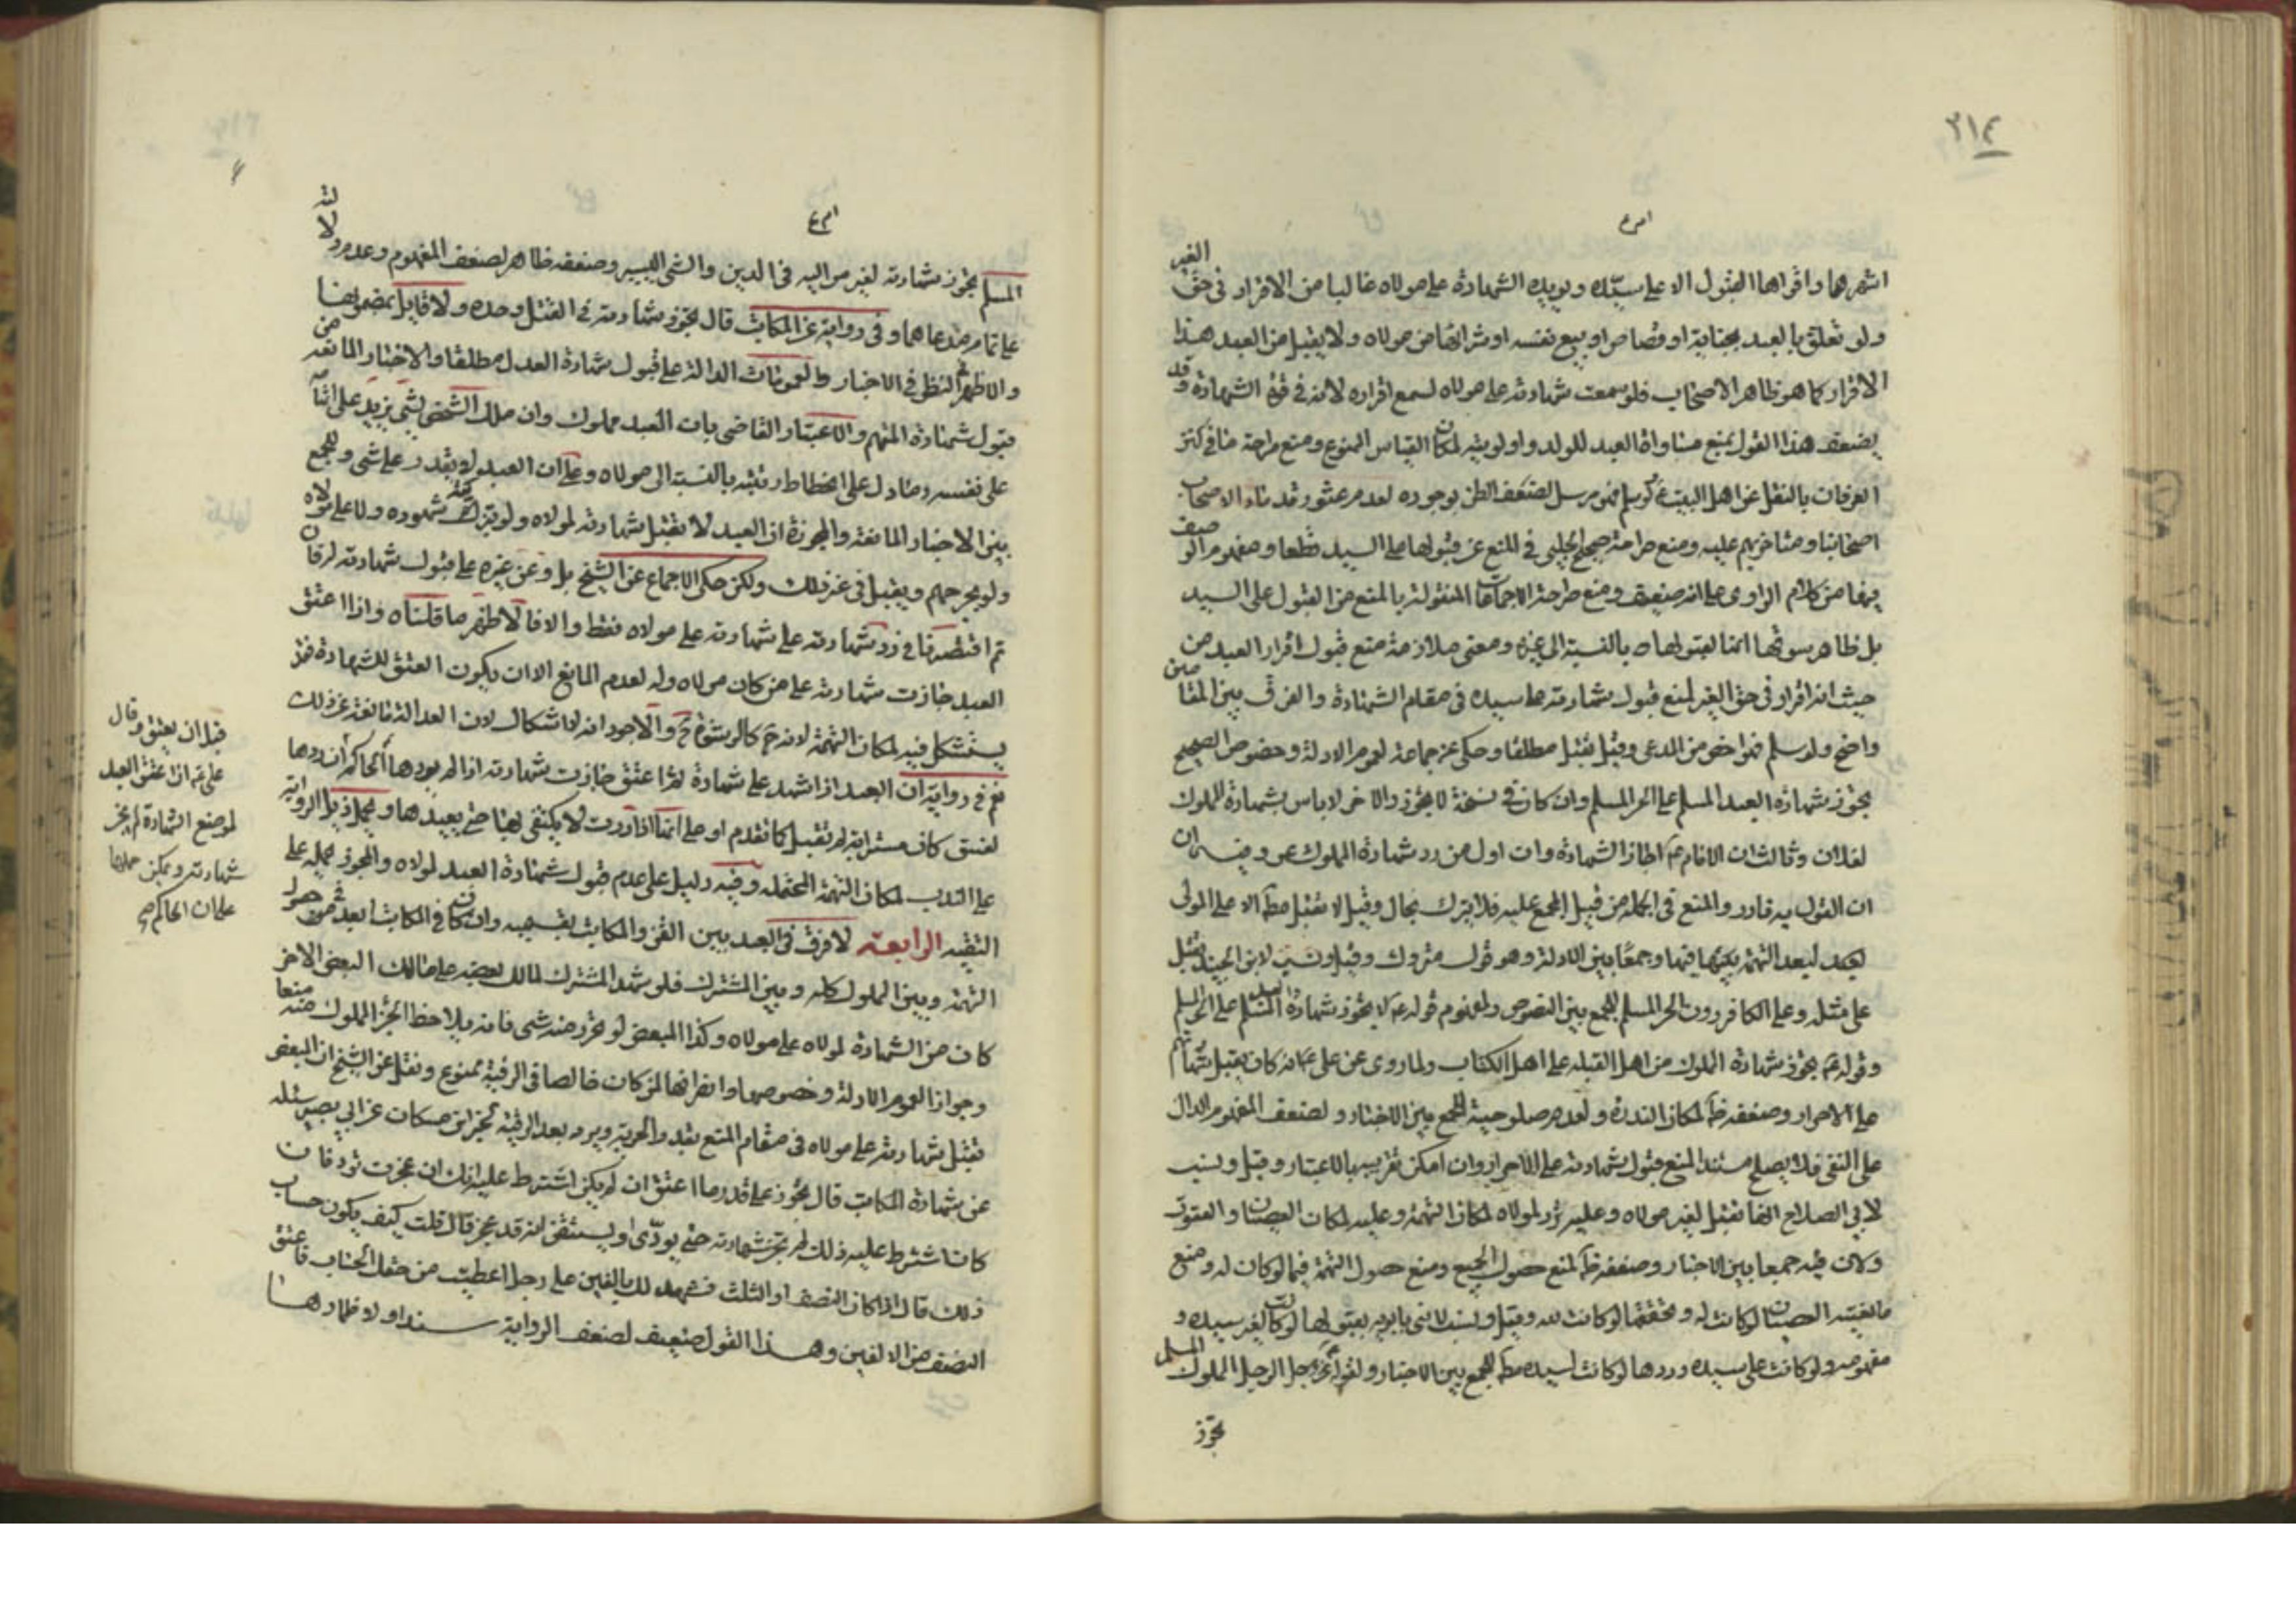 ٣١٤
اشهرها واقواها القبول الا على سيّده ويويده الشهادة على مولاه غالبا من الاقرار فى حق الغير
ولو تعلق بالعبد بجناية او قصاص او ببيع نفسه او شرائها من مولاه ولا يقبل من العبد هذا
الاقرار كما هو ظاهر الاصحاب فلو سمعت شهادته على مولاه لسمع اقراره لانه فى قوة الشهادة وقد
يضعف هذا القول بمنع مساواة العبد للولد واولويته لمكان القياس الممنوع ومنع صراحة ما فى كنز
العرفان بالنقل عن اهل البيت ع ولو سلم فهو مرسل لضعف الظن بوجوده لعدم عثور قدماء الاصحاب
اصحابنا ومتاخريهم عليه ومنع صراحة صحيح الحلبى فى المنع عن قبولها على السيد قطعا ومفهوم الوصف
فيها من كلام الراوى على انه ضعيف ومنع صراحة الاجماعات المنقولة بالمنع من القبول على السيد
بل ظاهر سوقها انما القبولها بالنسبة الى غيره ومعنى ملازمة منع قبول اقرار العبد من
حيث انه اقرار فى حق الغير لمنع قبول شهادته على سيده فى مقام الشهادة والفرق بين المقامين
واضح ولو سلم فهو اخص من المدعى وقيل تقبل مطلقا وحكى عن جماعة لعموم الادلة وخصوص الصحيح
يجوز شهادة العبد المسلم على الحر المسلم وان كان فى نسخة لا يجوز والاخر لا باس بشهادة المملوك
لفلان وثالث ان الامام ع اجاز الشهادة وان اول من رد شهادة المملوك عمر وفيه ان
ان القول به نادر والمنع فى الجملة من قبيل المجمع عليه فلا يترك بحال وقيل لا تقبل مط الا على المولى
لبعد التهمة فيها وجمعا بين الادلة وهو قول متروك وقيل ونسب لابن الجنيد تقبل
على مثله وعلى الكافر دون الحر المسلم للجمع بين النصوص ولمفهوم قوله ع لا يجوز شهادة العبد المسلم على الحر المسلم
وقوله ع يجوز شهادة المملوك من اهل القبلة على اهل الكتاب ولما روى عن على ع انه كان يقبل شهادتهم
على الاحرار وضعفه ظ لمكان الندرة ولعدم صلوحية للجمع بين الاخبار ولضعف المفهوم الدال
على النفى فلا يصلح مستند المنع قبول شهادته على الاحرار وان امكن تقريبها بالاعتبار وقيل ونسب
لابى الصلاح انها تقبل لغير مولاه وعليه ترد لمولاه لمكان التهمة وعليه لمكان العصيان والعقوق
ولان فيه جمعا بين الاخبار وضعفه ظ لمنع حصول الجميع ومنع حصول التهمة فيما لو كان له ومنع
العصيان لو كانت له وتحققها لو كانت لله وقيل ونسب لابنى بابويه بقبولها لو كانت لغير سيده و
مفهومه ولو كانت على سيده وردها لو كانت لسيده مط للجمع بين الاخبار ولقوله ع الرجل المملوك المسلم
تجوز
المسلم يجوز شهادته لغير مواليه فى الدين والشى اليسير وضعفه ظاهر لضعف المفهوم وعدم دلالته
على تمام مدعاهما وفى رواية عن المكاتب قال تجوز شهادته فى القتل وحده ولا قايل بمضمونها
والاظهر النظر فى الاخبار والعمومات الدالة على قبول شهادة العدل مطلقا والاخبار المانعة من
قبول شهادة المتهم والاعتبار القاضى بان العبد مملوك وان ملك الشخص لشى يزيد على
على نفسه وما دل على انحطاط رتبته بالنسبة الى مولاه وعلى ان العبد لا يقدر على شى والجمع
بين الاخبار المانعة والمجوزة ان العبد لا تقبل شهادته لمولاه ولو بتزكية شهوده ولا على مولاه
ولو بجرحهم ويقبل فى غير ذلك ولكن حكى الاجماع عن الشيخ بل وعن غيره على قبول شهادته لرقان
ثم اقتصرنا فى رد شهادته على شهادته على مولاه فقط والا فالاظهر ما قلناه واذا اعتق
العبد جازت شهادته على من كان مولاه وله لعدم المانع الا ان يكون العتق للشهادة فقد
يستشكل فيه لمكان التهمة لانه ح كالرشوة والاجود انه لا اشكال لان العدالة مانعة عن ذلك
نعم فى رواية ان العبد اذا شهد على شهادة ثم اعتق جازت شهادته اذا لم يردها الحاكم ان ردها
لفسق كان مشرابه لم تقبل كما تقدم او على انها اذا ردت لا يكتفى بها حتى يعيدها ويحمل ذيل الرواية
على الندب لمكان التهمة المحتملة وفيه دليل على عدم قبول شهادة العبد لمولاه والمجوز يحمله على
التقية الرابعة لا فرق فى العبد بين القن والمكاتب بقسميه وان كان فى المكاتب ابعد من حصول
التهمة وبين المملوك كله وبين المشترك فلو شهد المشترك لمالك بعضه على مالك البعض الاخر
كان من الشهادة لمولاه على مولاه وكذا المبعض لو تحرر منه شى فانه يلاحظ الجزء المملوك منه منعا
وجوازا لعموم الادلة وخصوصها وانصرافها لمن كان خالصا فى الرقية ممنوع ونقل عن الشيخ ان المبعض
تقبل شهادته على مولاه فى مقام المنع بقدر الحرية ويرد بعد الرقية لخبر ابن مسكان عن ابى بصير سئله
عن شهادة المكاتب قال تجوز على قدر ما اعتق ان لم يكن اشترط عليه انك ان عجزت رددناك فان
كان اشترط عليه ذلك لم تجز شهادته حتى يودّى او يستيقن انه قد عجز قال قلت كيف يكون حساب
ذلك قال اذا كان النصف او الثلث فشهد لك بالفين على رجل اعطيت من حقك بحساب ما عتق
النصف من الالفين وهذا القول ضعيف لضعف الرواية سندا ولاضمارها
قبل ان يعتق وقال
على ع ان اعتق العبد
لموضع الشهادة لم تجز
شهادته ويمكن حملها
على ان الحاكم